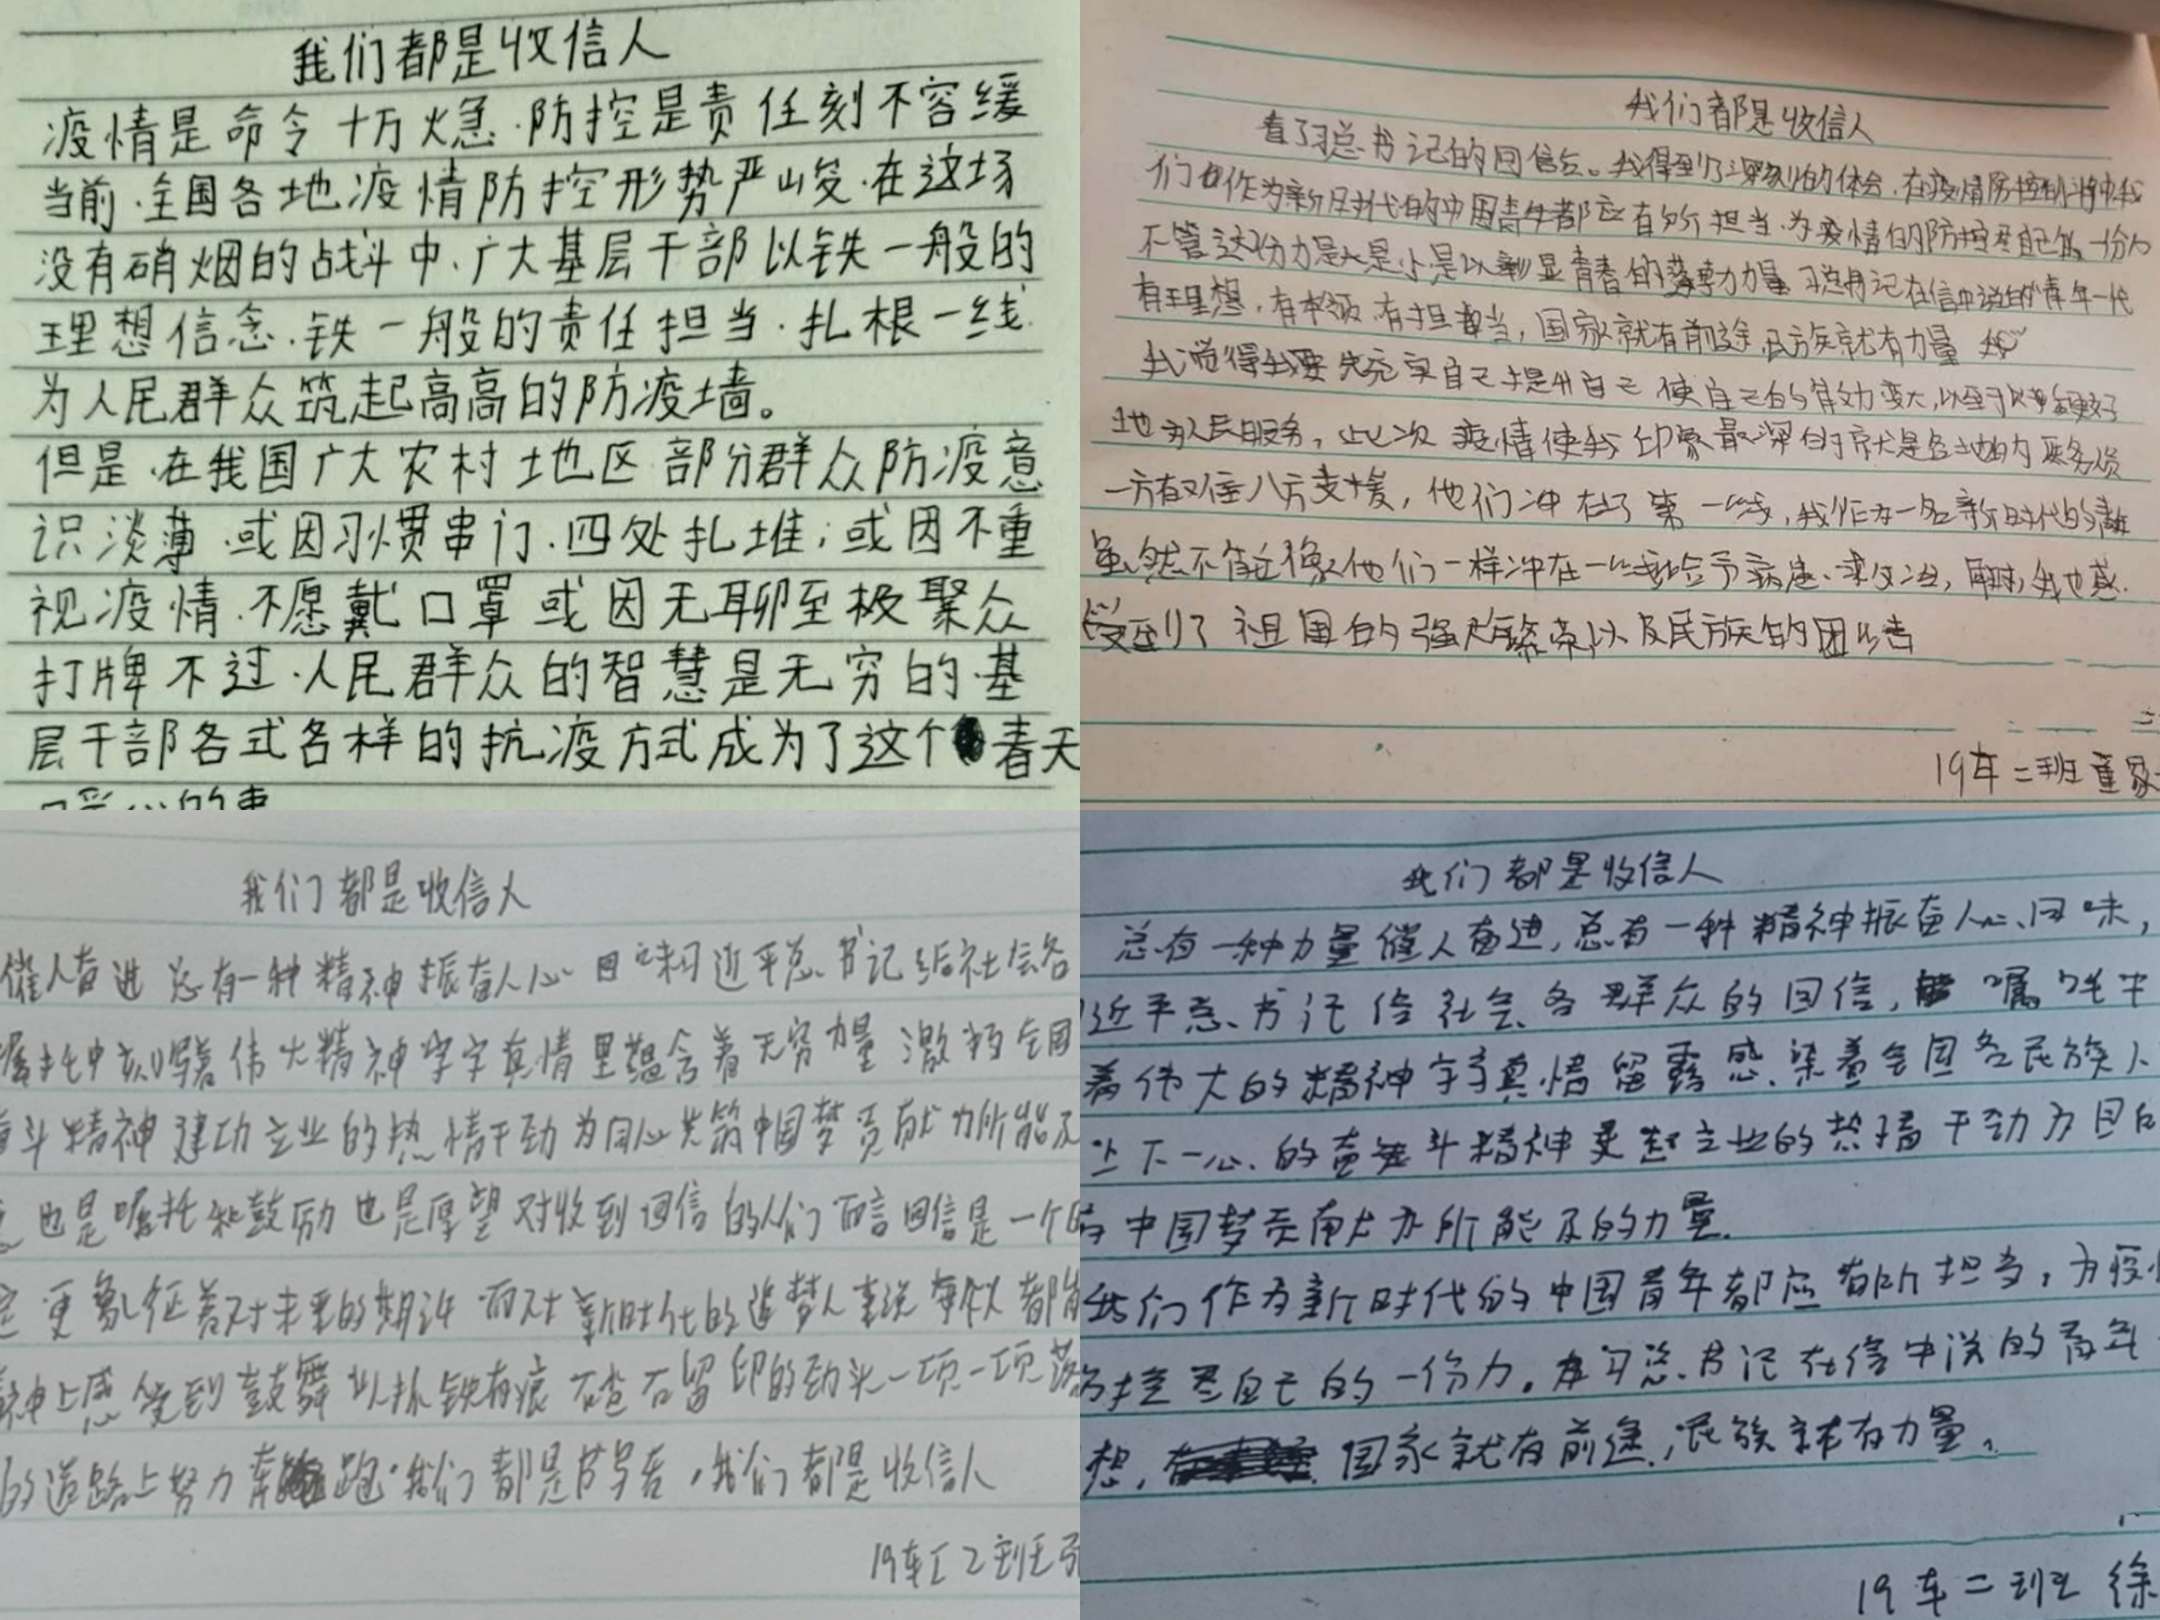 我们都是收信人
疫情是命令十万火急.防控是责任刻不容缓
当前.全国各地疫情防控形势严峻.在这场
没有硝烟的战斗中.广大基层干部以铁一般的
理想信念.铁一般的责任担当.扎根一线.
为人民群众筑起高高的防疫墙。
但是.在我国广大农村地区部分群众防疫意
识淡薄.或因习惯串门.四处扎堆;或因不重
视疫情.不愿戴口罩或因无聊至极聚众
打牌不过.人民群众的智慧是无穷的.基
层干部各式各样的抗疫方式成为了这个春天
我们都是收信人
看了习总书记的回信后。我得到了深刻的体会.在疫情防控阻击战中我
们作为新时代的中国青年都应有所担当.为疫情的防控尽自己的一份力
不管这份力是大是小是以彰显青春的蓬勃力量.习总书记在信中说的青年一代
有理想.有本领.有担当,国家就有前途,民族就有力量
我觉得我要先充实自己提升自己使自己的能力变大,以至于以更好
地为人民服务,此次疫情使我印象最深的就是各地的医务人员
一方有难八方支援,他们冲在了第一线,我作为一名新时代的青年
虽然不能像他们一样冲在一线给予病患,同时,我也感
受到了祖国的强大繁荣以及民族的团结
19车二班童家
我们都是收信人
催人奋进总有一种精神振奋人心回味习近平总书记给社会各
嘱托中刻写着伟大精神字字真情里蕴含着无穷力量激励全国
奋斗精神建功立业的热情干劲为同心共筑中国梦贡献力所能及
也是嘱托和鼓励也是厚望对收到回信的人们而言回信是一个
更象征着对未来的期许而对新时代的追梦人来说每个人都能
精神上感受到鼓舞以抓铁有痕踏石留印的劲头一项一项落
的道路上努力奔跑.我们都是收信人
19车工2班张
我们都是收信人
总有一种力量催人奋进,总有一种精神振奋人心.回味,
近平总书记给社会各群众的回信,嘱咐中
着伟大的精神字字真情留露感染着全国各民族人
上下一心的奋斗精神更起立业的热情干劲为目的
中国梦贡献力所能及的力量.
我们作为新时代的中国青年都应有所担当,为疫情
防控尽自己的一份力。在习总书记在信中说的青年
想,国家就有前途,民族就有力量。
19车二班徐